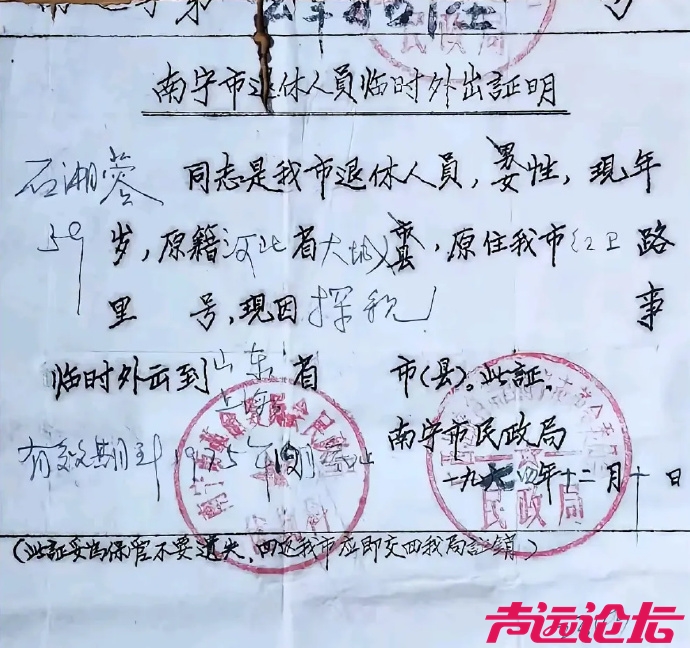 民政局
南宁市退休人員临时外出証明
石湘蓉 同志是我市退休人員，男女性，現年
59 岁，原籍河北省大城市县，原住我市红卫路
里 号，現因探親 事
临时外出到山东省 市(县)。此証。
上海
南宁市民政局
有效期到1975年 月
一九七四年十二月十日
民政局
(此証妥为保管不要遗失，回返我市应即交回我局註銷)
声远论坛